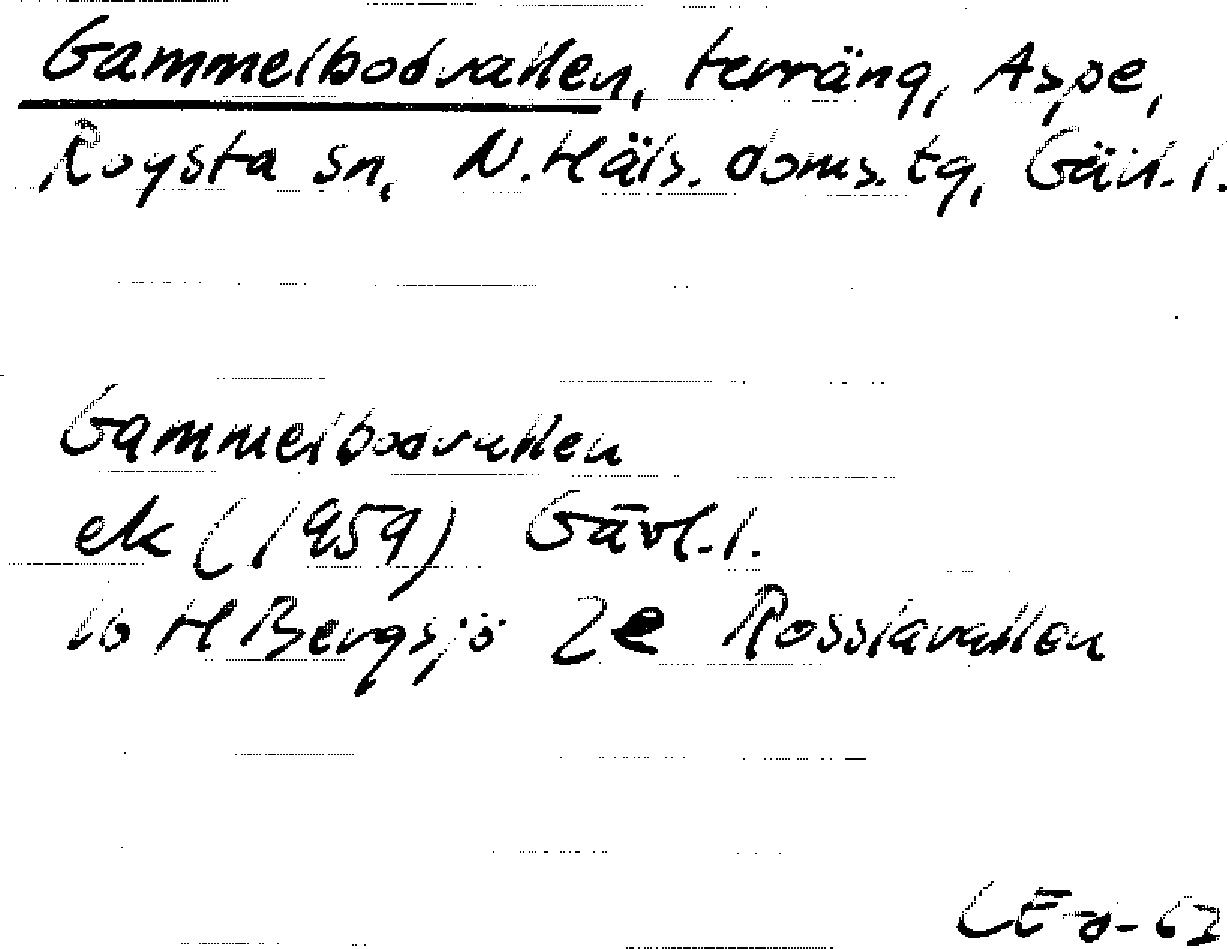 Gammelbodvallen, terräng, Aspe,
Rogsta sn, N. Häls. doms. tg, Gävl. l.
Gammelbodvallen
ek (1959) Gävl. l.
16 H Bergsjö 2e Rosslavallen